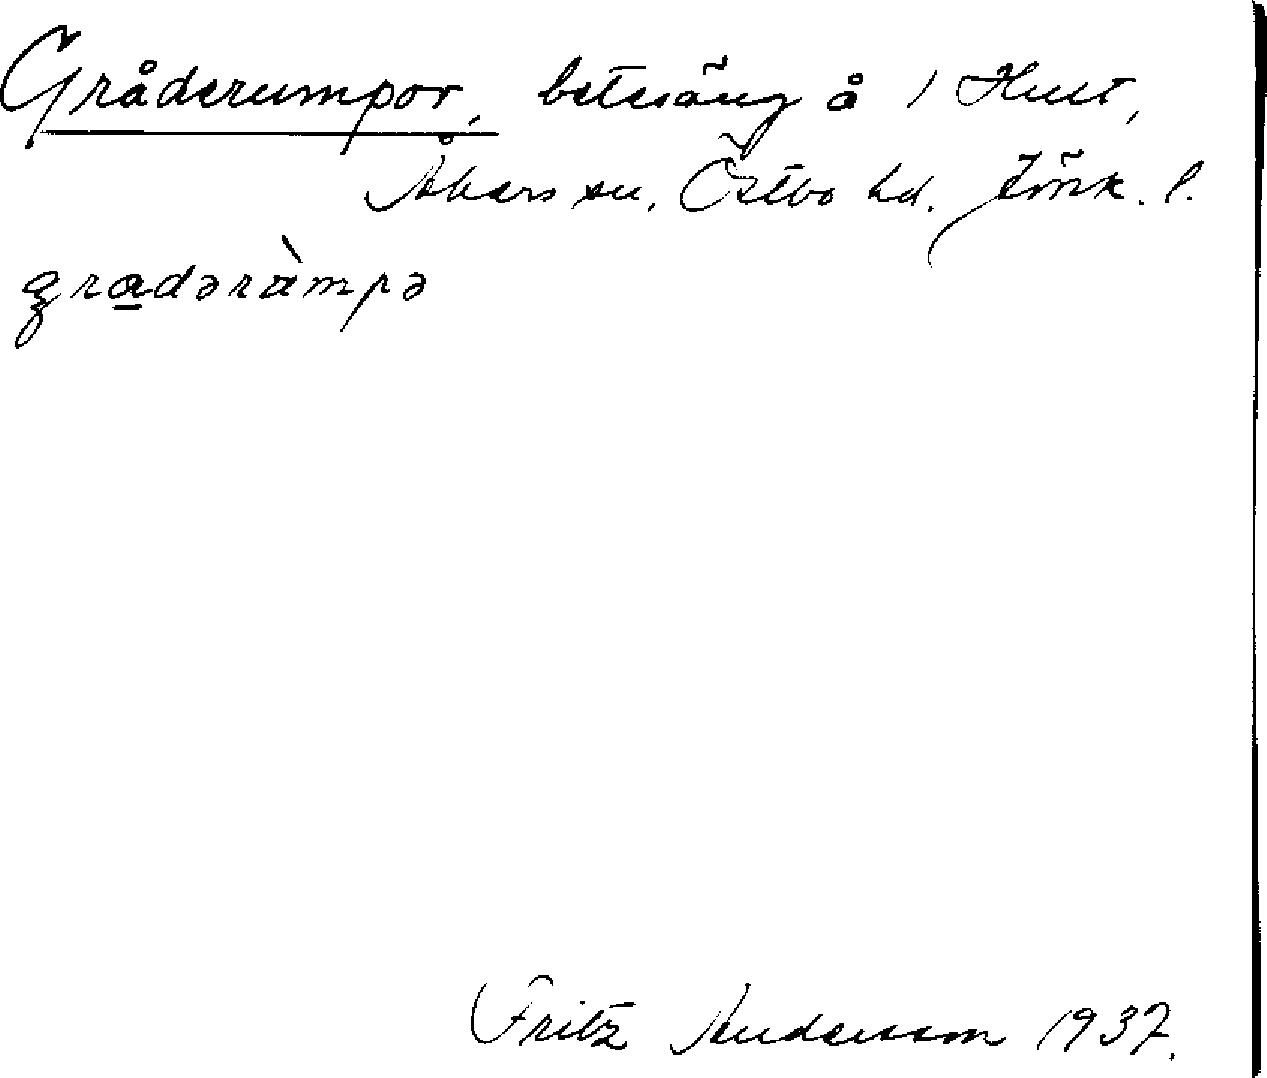 Gråderumpor, betesäng å 1 Hult,
Åkers sn, Östbo hd. Jönk. l.
gradəràmpə
Fritz Andersson 1937.